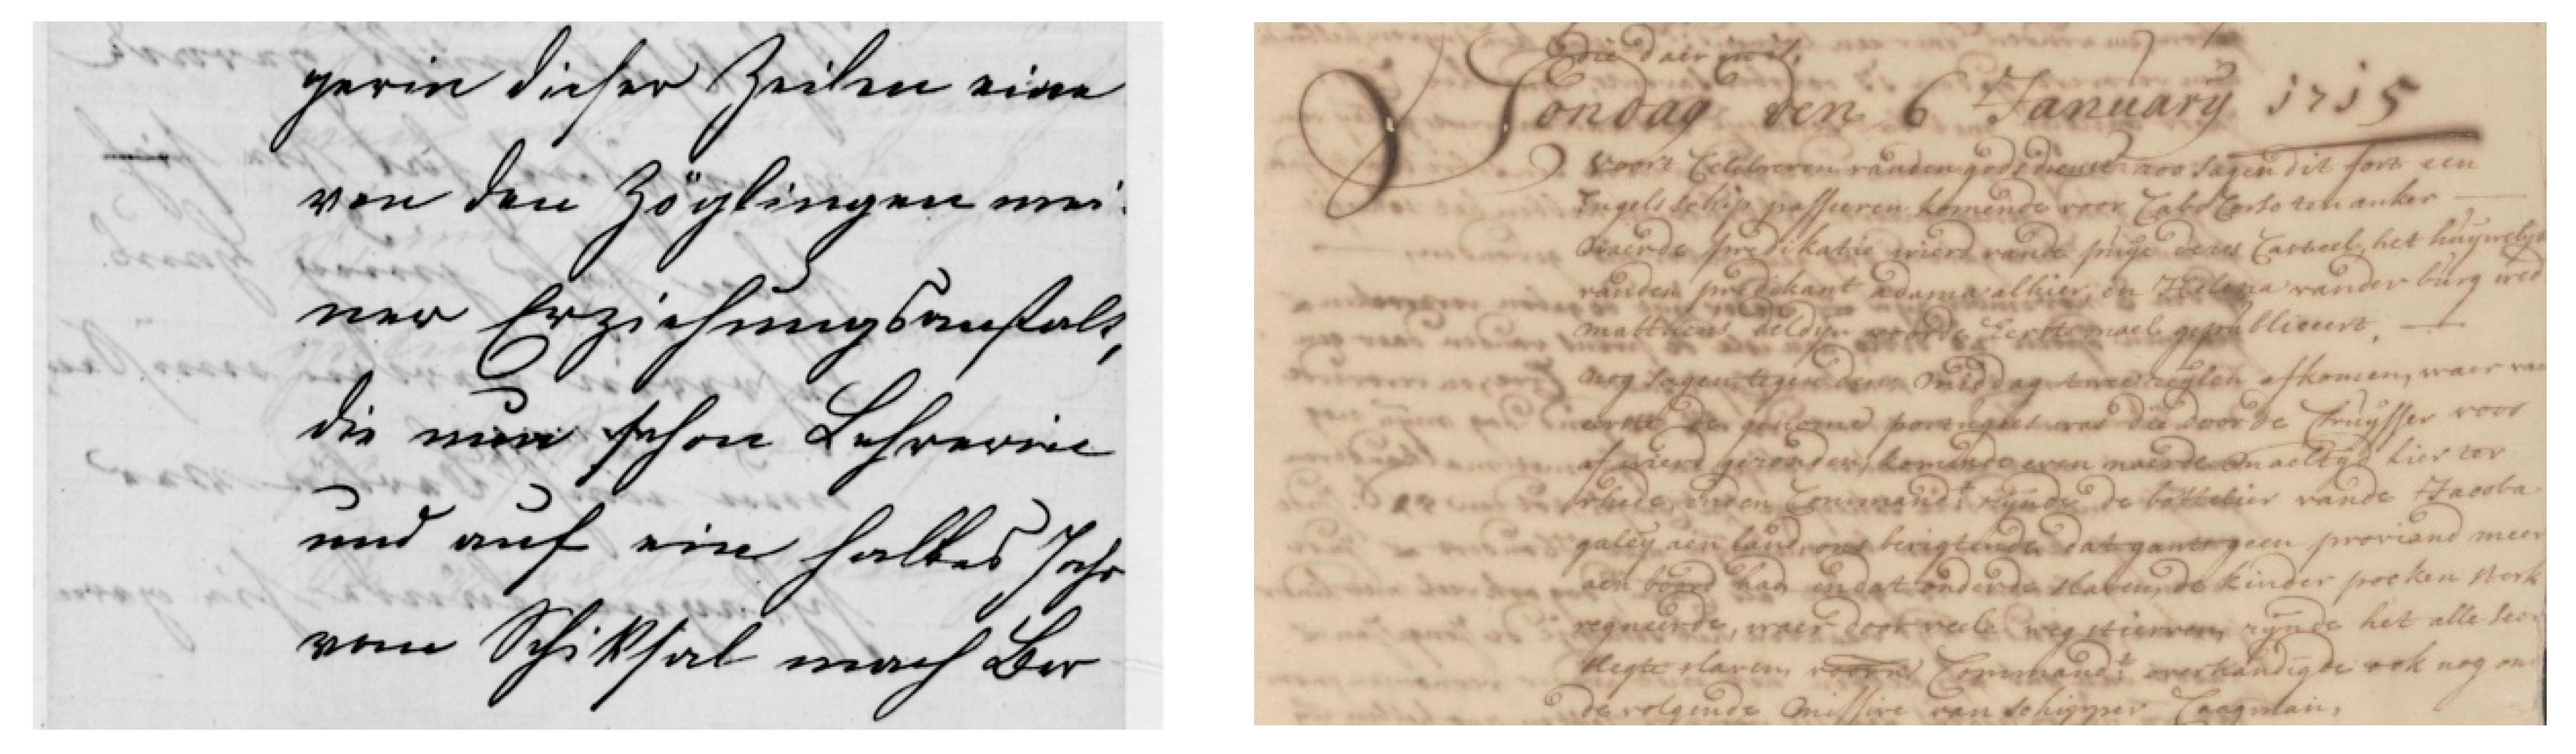 gerin dieser Zeilen eine
von den Zöglingen mei-
ner Erziehungsanstalt,
die nun schon Lehrerin
und auf ein halbes Jahr
vom Schiksal nach Ber
die daer uit,
Sondag den 6 January 1715
Voort Celebreren vanden godsdienst zoo sagen dit fort een
Engels schip passeeren komende voor Cabo Corso ten anker
Naer de predikatie wierd vande puije deses Casteel, het huijwelijk
vanden predikant adama alhier, en Helena vander burg wed
mattheus beldijn voor de Eerste mael gepubliceert,
nog sagen tegen den middag twee zeijlen afkomen, waer van
eene de genome portugees was die door de Cruijsser voor
af wierd gesonden, komende even naer de maeltijd hier ter
rhede, enden Command.t zijnde de bottelier vande Jacoba
galeij aen land, ons berigtende dat gants geen proviand meer
aen boord had en dat onder de slaven, de kinder pocken sterk
regneerde, waer door veele weg stierven, zijnde het alle seer
slegte slaven, voorn Command.t overhandigde ook nog ons
de volgende missive van schipper Caagman,